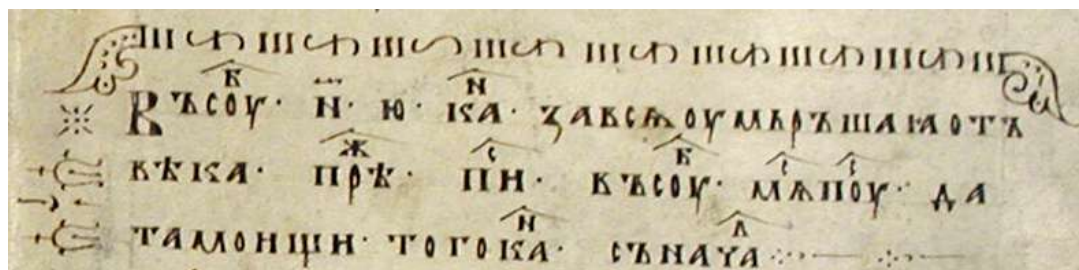 Въсоуⷠ· и· ю· каⷩ· ꙁавсѧоумьръшаꙗотъ
вѣка· прѣⷤ· пиⷭ· въсоуⷠ· мѧⷭпоуⷭ· да
тамоищи· тогокаⷩ· съначаⷧ